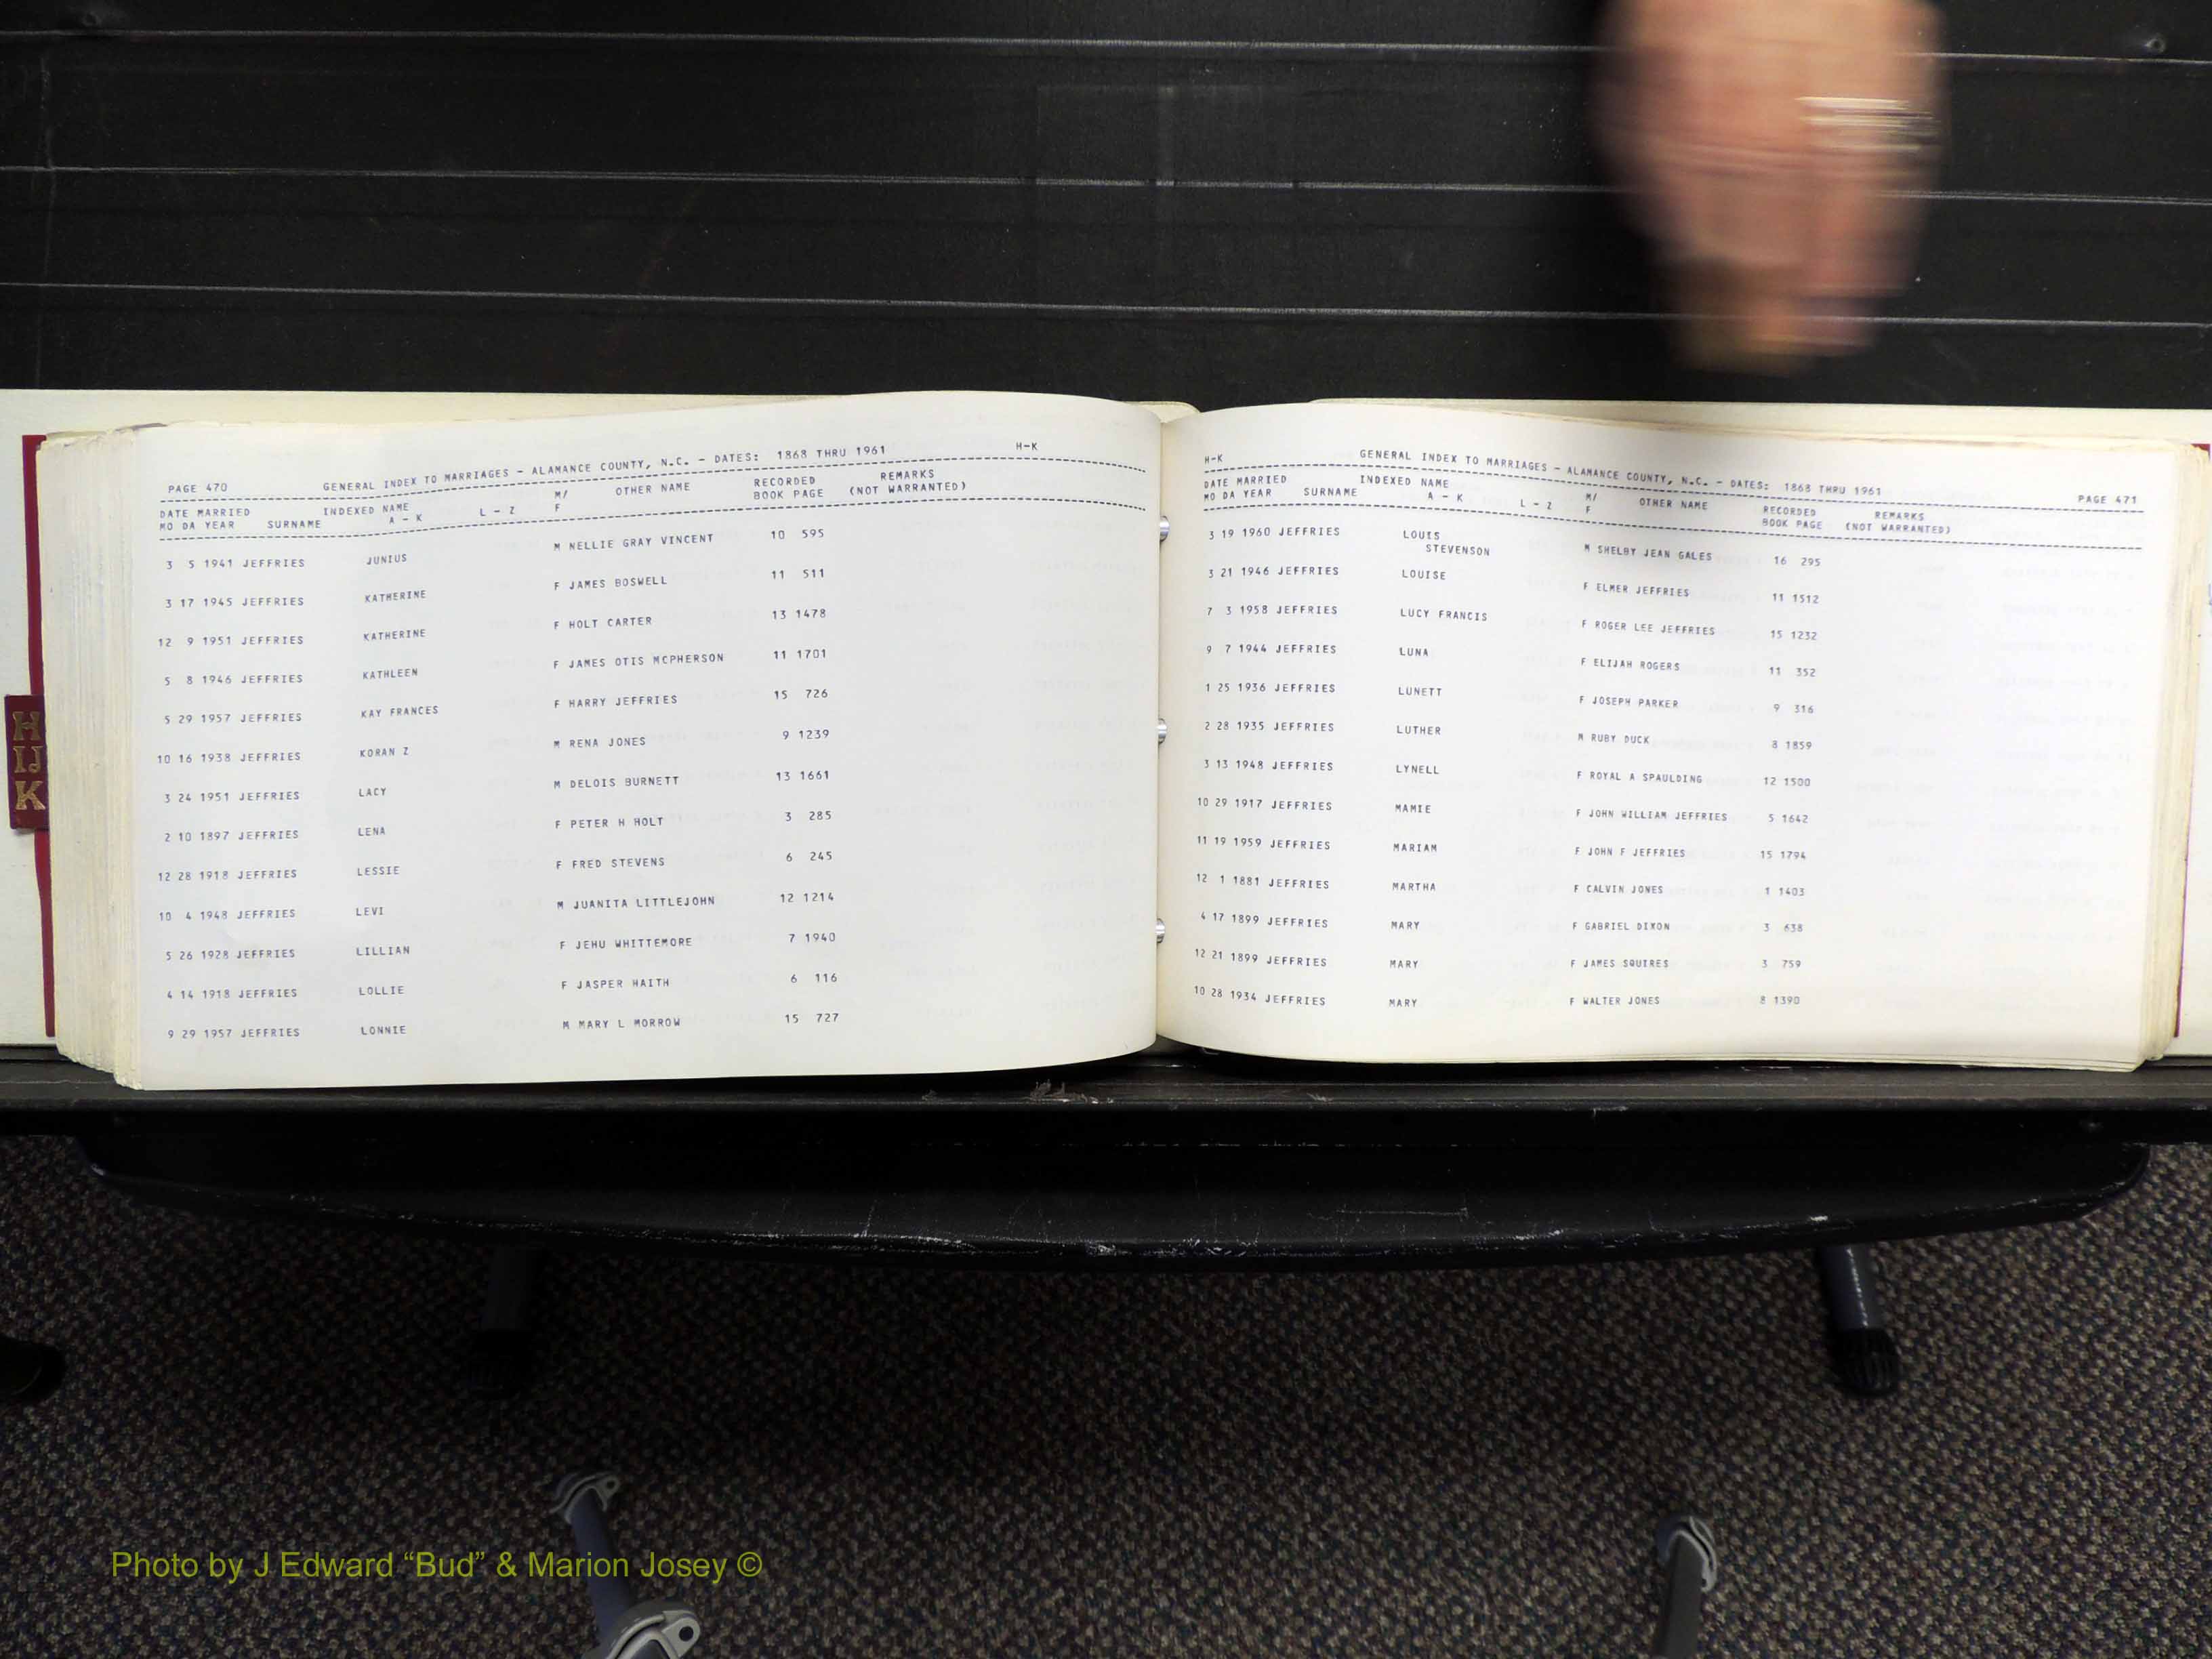 PAGE 470 GENERAL INDEX TO MARRIAGES - ALAMANCE COUNTY, N.C. - DATES: 1868 THRU 1961 H-K
DATE MARRIED INDEXED NAME M/ OTHER NAME RECORDED REMARKS
MO DA YEAR SURNAME A - K L - Z F BOOK PAGE (NOT WARRANTED)
3 5 1941 JEFFRIES JUNIUS M NELLIE GRAY VINCENT 10 595
3 17 1945 JEFFRIES KATHERINE F JAMES BOSWELL 11 511
12 9 1951 JEFFRIES KATHERINE F HOLT CARTER 13 1478
5 8 1946 JEFFRIES KATHLEEN F JAMES OTIS MCPHERSON 11 1701
5 29 1957 JEFFRIES KAY FRANCES F HARRY JEFFRIES 15 726
10 16 1938 JEFFRIES KORAN Z M RENA JONES 9 1239
3 24 1951 JEFFRIES LACY M DELOIS BURNETT 13 1661
2 10 1897 JEFFRIES LENA F PETER H HOLT 3 285
12 28 1918 JEFFRIES LESSIE F FRED STEVENS 6 245
10 4 1948 JEFFRIES LEVI M JUANITA LITTLEJOHN 12 1214
5 26 1928 JEFFRIES LILLIAN F JEHU WHITTEMORE 7 1940
4 14 1918 JEFFRIES LOLLIE F JASPER HAITH 6 116
9 29 1957 JEFFRIES LONNIE M MARY L MORROW 15 727
H-K GENERAL INDEX TO MARRIAGES - ALAMANCE COUNTY, N.C. - DATES: 1868 THRU 1961 PAGE 471
DATE MARRIED INDEXED NAME M/ OTHER NAME RECORDED REMARKS
MO DA YEAR SURNAME A - K L - Z F BOOK PAGE (NOT WARRANTED)
3 19 1960 JEFFRIES LOUIS M SHELBY JEAN GALES 16 295
STEVENSON
3 21 1946 JEFFRIES LOUISE F ELMER JEFFRIES 11 1512
7 3 1958 JEFFRIES LUCY FRANCIS F ROGER LEE JEFFRIES 15 1232
9 7 1944 JEFFRIES LUNA F ELIJAH ROGERS 11 352
1 25 1936 JEFFRIES LUNETT F JOSEPH PARKER 9 316
2 28 1935 JEFFRIES LUTHER M RUBY DUCK 8 1859
3 13 1948 JEFFRIES LYNELL F ROYAL A SPAULDING 12 1500
10 29 1917 JEFFRIES MAMIE F JOHN WILLIAM JEFFRIES 5 1642
11 19 1959 JEFFRIES MARIAM F JOHN F JEFFRIES 15 1794
12 1 1881 JEFFRIES MARTHA F CALVIN JONES 1 1403
4 17 1899 JEFFRIES MARY F GABRIEL DIXON 3 638
12 21 1899 JEFFRIES MARY F JAMES SQUIRES 3 759
10 28 1934 JEFFRIES MARY F WALTER JONES 8 1390
H
IJ
K
Photo by J Edward “Bud” & Marion Josey ©